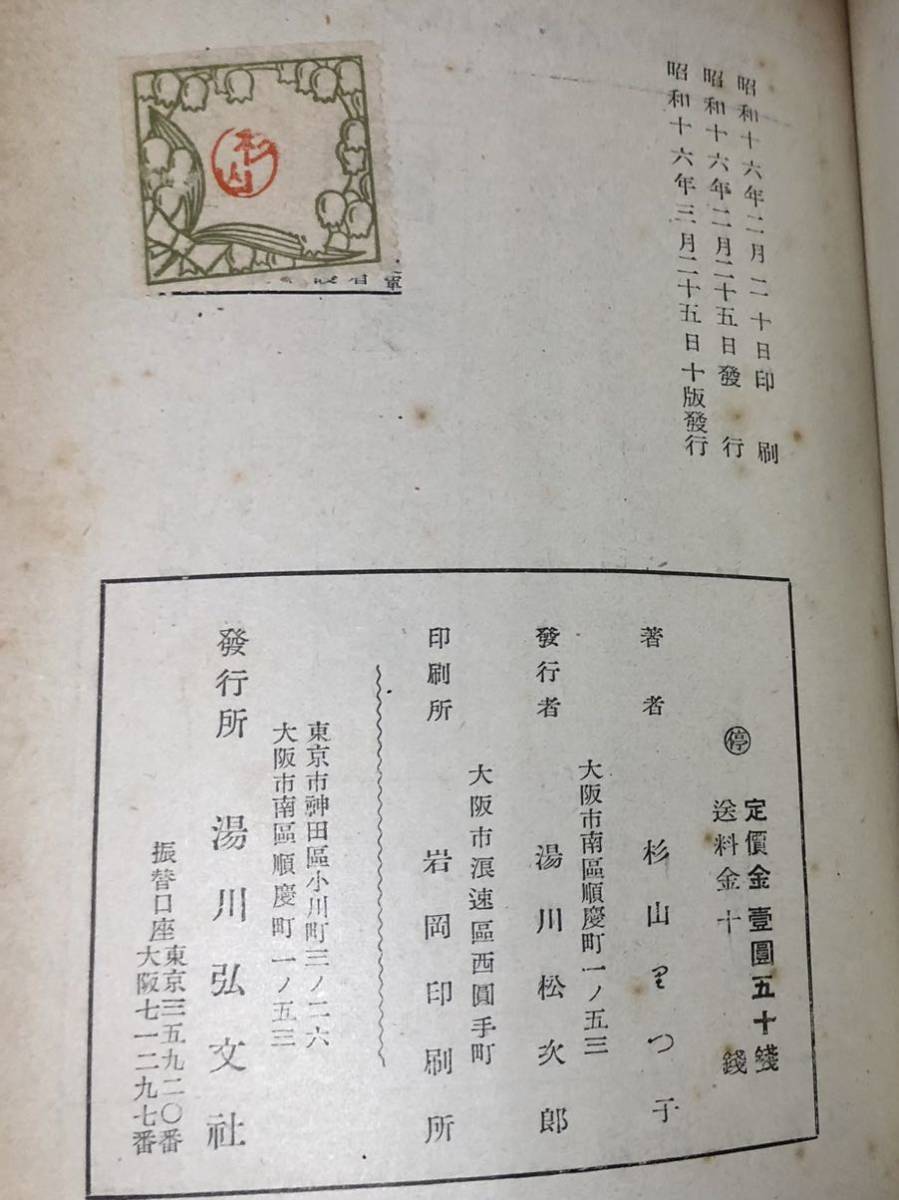 昭和十六年二月二十日印刷
昭和十六年二月二十五日發行
昭和十六年三月二十五日十版發行
杉山
停
定價金壹圓五十錢
送料金十錢
著者 杉山りつ子
大阪市南區順慶町一ノ五三
發行者 湯川松次郎
大阪市浪速區西圓手町
印刷所 岩岡印刷所
東京市神田區小川町三ノ二六
大阪市南區順慶町一ノ五三
發行所 湯川弘文社
振替口座
東京三五九二〇番
大阪七一二九七番